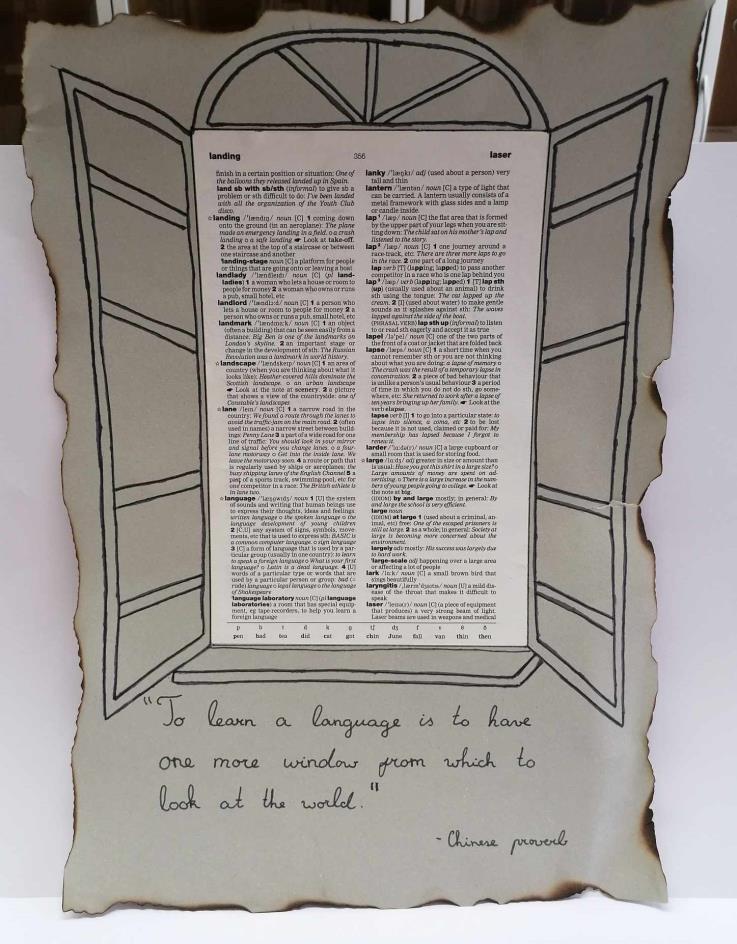 landing
356
laser
finish in a certain position or situation: One of
the balloons they released landed up in Spain.
land sb with sb/sth (informal) to give sb a
problem or sth difficult to do: I've been landed
with all the organization of the Youth Club
disco.
landing /ˈlændɪŋ/ noun [C] 1 coming down
onto the ground (in an aeroplane): The plane
made an emergency landing in a field. o a crash
landing o a safe landing ☛ Look at take-off.
2 the area at the top of a staircase or between
one staircase and another
'landing-stage noun [C] a platform for people
or things that are going onto or leaving a boat
landlady /ˈlændleɪdi/ noun [C] (pl land-
ladies) 1 a woman who lets a house or room to
people for money 2 a woman who owns or runs
a pub, small hotel, etc
landlord /ˈlændlɔːd/ noun [C] 1 a person who
lets a house or room to people for money 2 a
person who owns or runs a pub, small hotel, etc
landmark /ˈlændmɑːk/ noun [C] 1 an object
(often a building) that can be seen easily from a
distance: Big Ben is one of the landmarks on
London's skyline. 2 an important stage or
change in the development of sth: The Russian
Revolution was a landmark in world history.
landscape /ˈlændskeɪp/ noun [C] 1 an area of
country (when you are thinking about what it
looks like): Heather-covered hills dominate the
Scottish landscape. o an urban landscape
☛ Look at the note at scenery. 2 a picture
that shows a view of the countryside: one of
Constable's landscapes
lane /leɪn/ noun [C] 1 a narrow road in the
country: We found a route through the lanes to
avoid the traffic jam on the main road. 2 (often
used in names) a narrow street between build-
ings: Penny Lane 3 a part of a wide road for one
line of traffic: You should look in your mirror
and signal before you change lanes. o a four-
lane motorway o Get into the inside lane. We
leave the motorway soon. 4 a route or path that
is regularly used by ships or aeroplanes: the
busy shipping lanes of the English Channel 5 a
part of a sports track, swimming-pool, etc for
one competitor in a race: The British athlete is
in lane two.
language /ˈlæŋɡwɪdʒ/ noun 1 [U] the system
of sounds and writing that human beings use
to express their thoughts, ideas and feelings:
written language o the spoken language o the
language development of young children
2 [C,U] any system of signs, symbols, move-
ments, etc that is used to express sth: BASIC is
a common computer language. o sign language
3 [C] a form of language that is used by a par-
ticular group (usually in one country): to learn
to speak a foreign language o What is your first
language? o Latin is a dead language. 4 [U]
words of a particular type or words that are
used by a particular person or group: bad (=
rude) language o legal language o the language
of Shakespeare
'language laboratory noun [C] (pl language
laboratories) a room that has special equip-
ment, eg tape-recorders, to help you learn a
foreign language
lanky /ˈlæŋki/ adj (used about a person) very
tall and thin
lantern /ˈlæntən/ noun [C] a type of light that
can be carried. A lantern usually consists of a
metal framework with glass sides and a lamp
or candle inside.
lap¹ /læp/ noun [C] the flat area that is formed
by the upper part of your legs when you are sit-
ting down: The child sat on his mother's lap and
listened to the story.
lap² /læp/ noun [C] 1 one journey around a
race-track, etc. There are three more laps to go
in the race. 2 one part of a long journey
lap verb [T] (lapping; lapped) to pass another
competitor in a race who is one lap behind you
lap³ /læp/ verb (lapping; lapped) 1 [T] lap sth
(up) (usually used about an animal) to drink
sth using the tongue: The cat lapped up the
cream. 2 [I] (used about water) to make gentle
sounds as it splashes against sth: The waves
lapped against the side of the boat.
(PHRASAL VERB) lap sth up (informal) to listen
to or read sth eagerly and accept it as true
lapel /ləˈpel/ noun [C] one of the two parts of
the front of a coat or jacket that are folded back
lapse /læps/ noun [C] 1 a short time when you
cannot remember sth or you are not thinking
about what you are doing: a lapse of memory o
The crash was the result of a temporary lapse in
concentration. 2 a piece of bad behaviour that
is unlike a person's usual behaviour 3 a period
of time in which you do not do sth, go some-
where, etc: She returned to work after a lapse of
ten years bringing up her family. ☛ Look at the
verb elapse.
lapse verb [I] 1 to go into a particular state: to
lapse into silence, a coma, etc 2 to be lost
because it is not used, claimed or paid for: My
membership has lapsed because I forgot to
renew it.
larder /ˈlɑːdə(r)/ noun [C] a large cupboard or
small room that is used for storing food.
large /lɑːdʒ/ adj greater in size or amount than
is usual: Have you got this shirt in a large size? o
Large amounts of money are spent on ad-
vertising. o There is a large increase in the num-
bers of young people going to college. ☛ Look
at the note at big.
(IDIOM) by and large mostly; in general: By
and large the school is very efficient.
large noun
(IDIOM) at large 1 (used about a criminal, an-
imal, etc) free: One of the escaped prisoners is
still at large. 2 as a whole; in general: Society at
large is becoming more concerned about the
environment.
largely adv mostly: His success was largely due
to hard work.
'large-scale adj happening over a large area
or affecting a lot of people
lark /lɑːk/ noun [C] a small brown bird that
sings beautifully
laryngitis /ˌlærɪnˈdʒaɪtɪs/ noun [U] a mild dis-
ease of the throat that makes it difficult to
speak
laser /ˈleɪzə(r)/ noun [C] (a piece of equipment
that produces) a very strong beam of light:
Laser beams are used in weapons and medical
p b t d k g tʃ dʒ f v θ ð
pen bad tea did cat got chin June fall van thin then
"To learn a language is to have
one more window from which to
look at the world."
- Chinese proverb